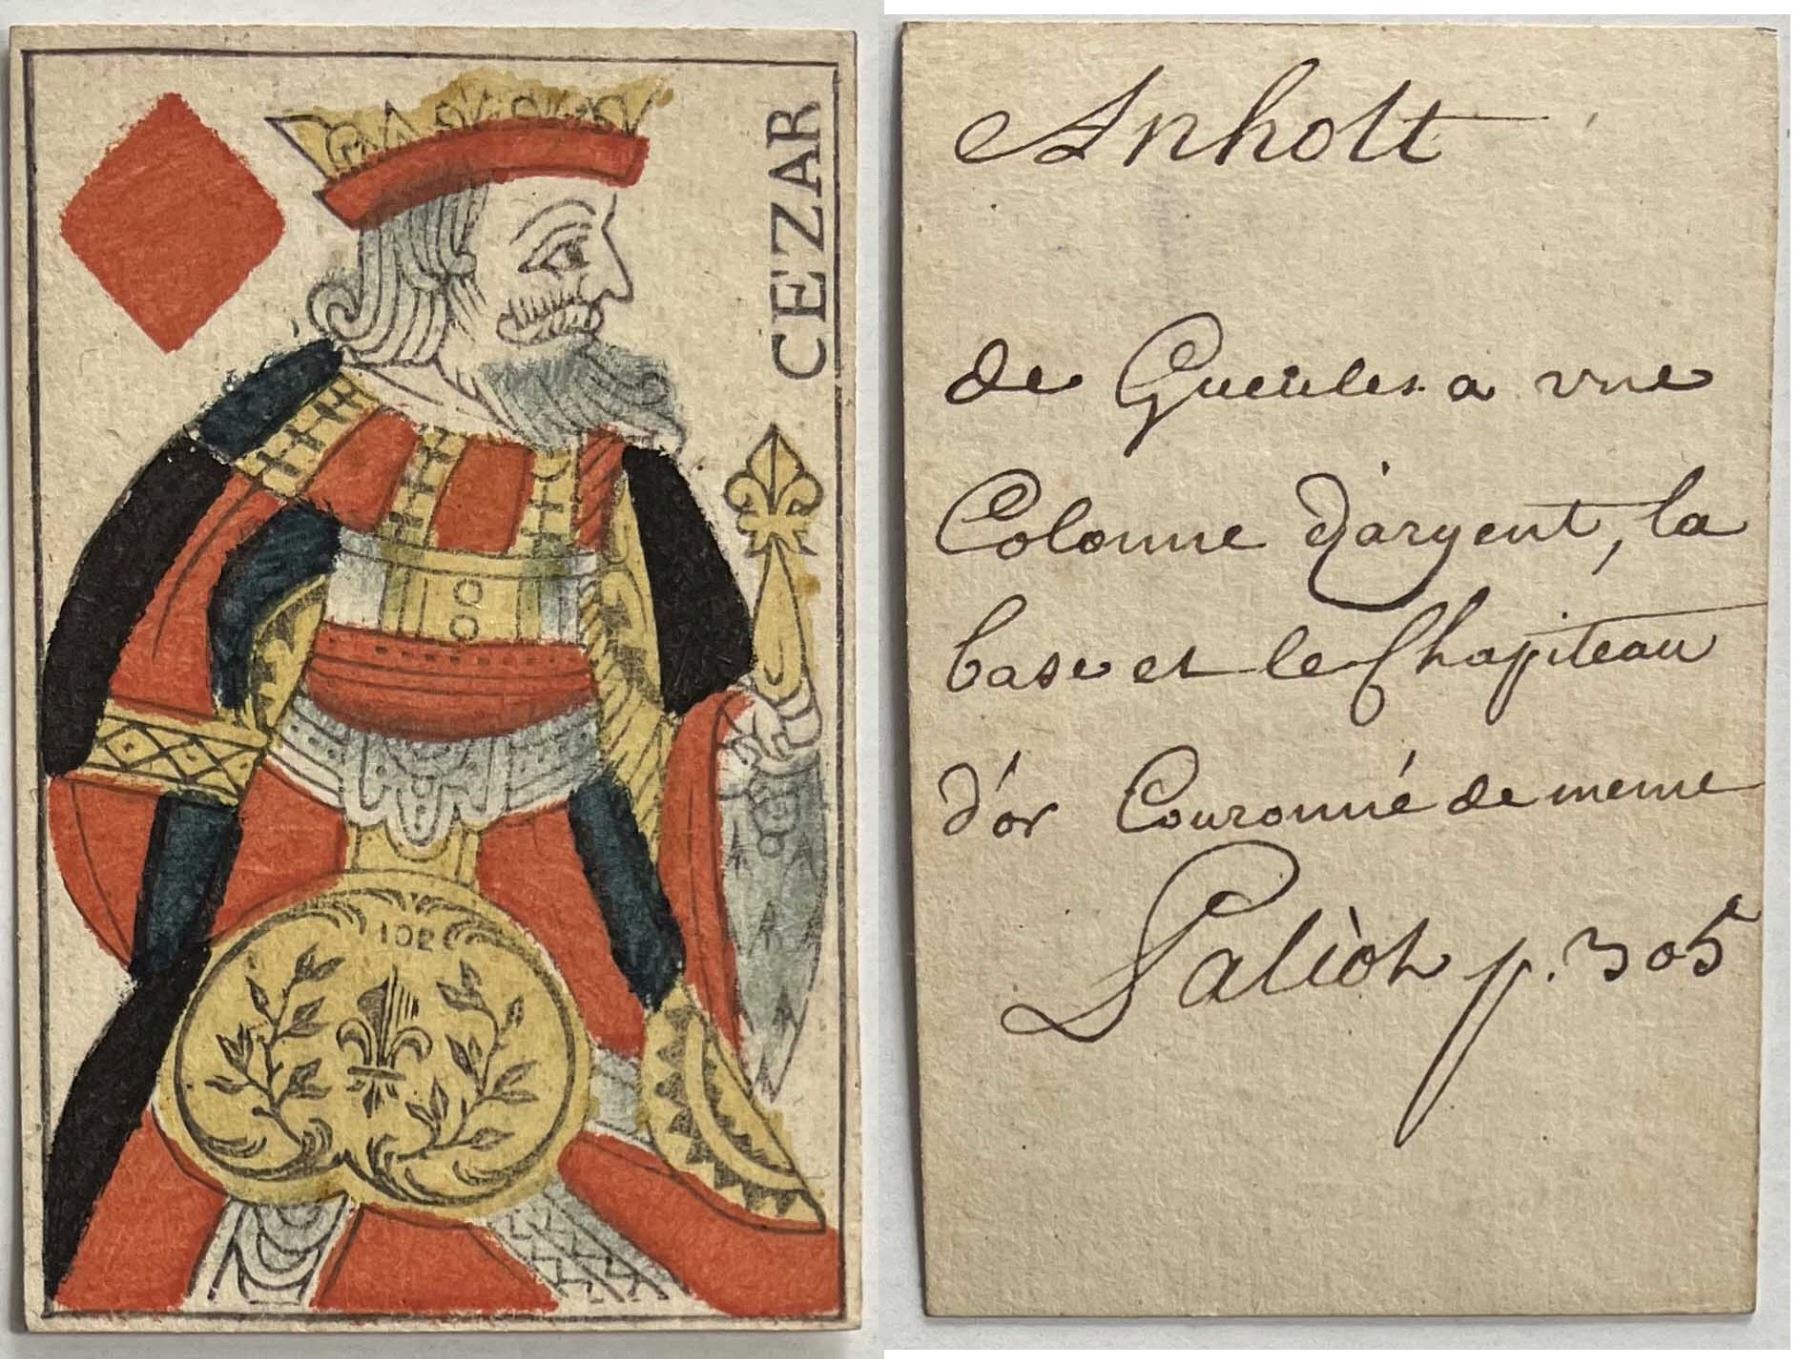 CEZAR
102
Anholt
de Gueules a vne
Colonne d'argent, la
base et le Chapiteau
d'or Couronné de meme
Paliot p. 305